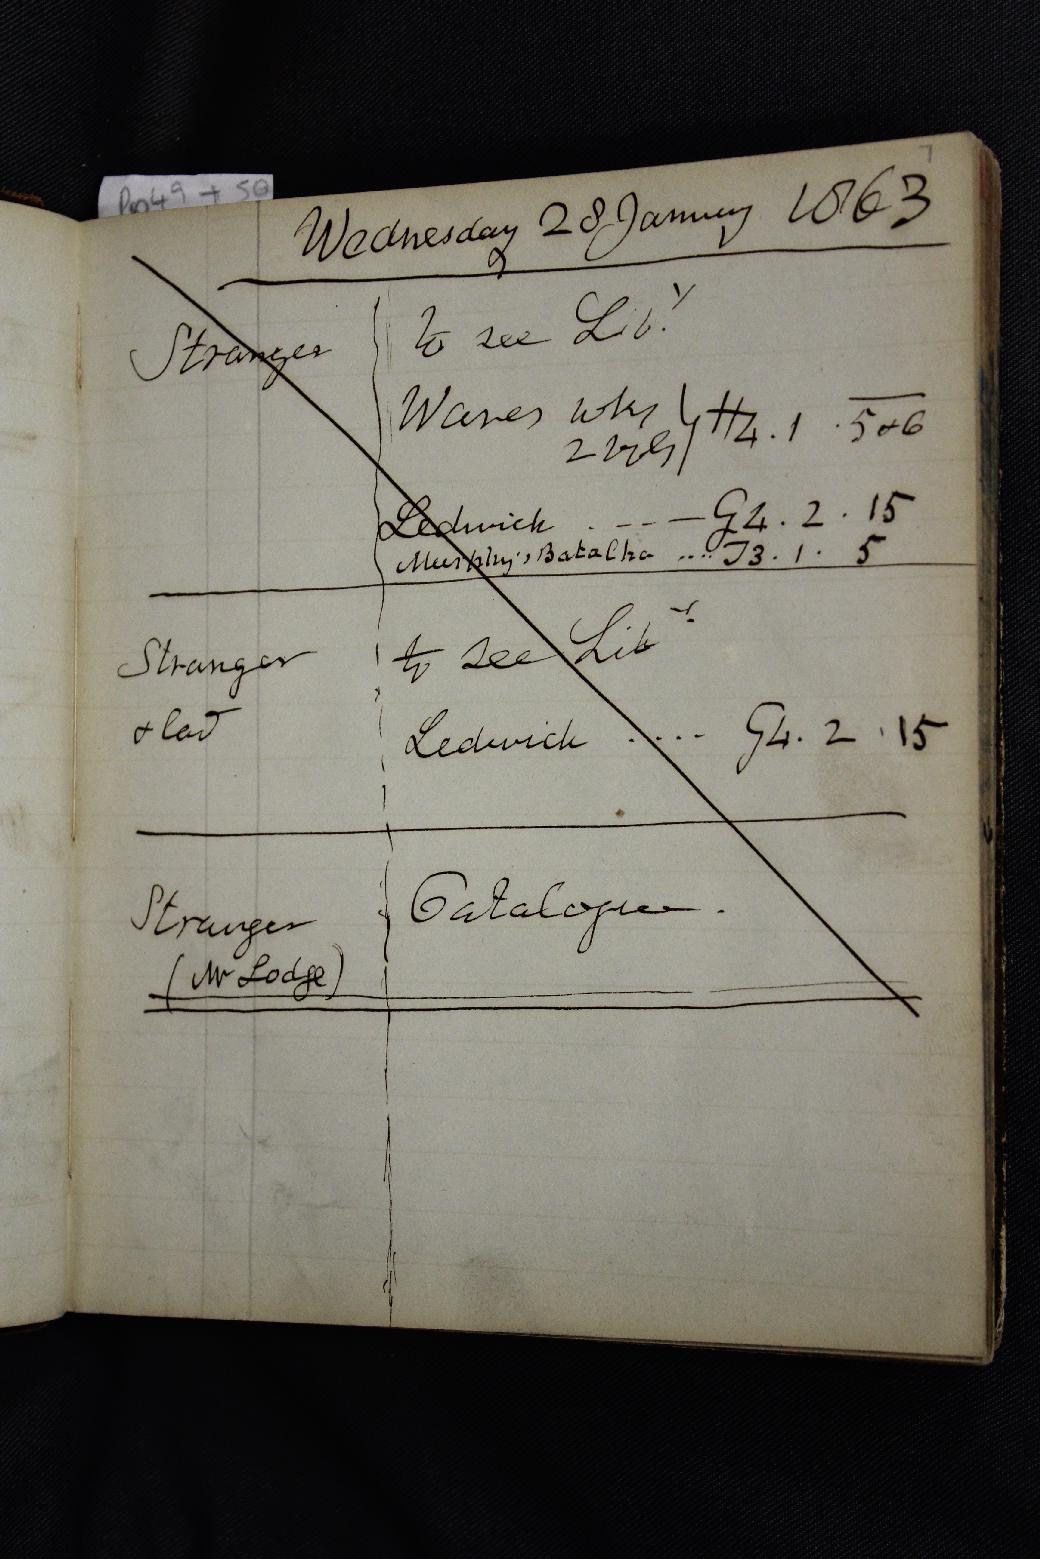 Pp 49 + 50
7
Wednesday 28 January 1863
Stranger to see Lib.y
Wares wks } H4. 1 . 5 & 6
2 vols
Ledwick . - - - G4. 2 . 15
Murphy's Batalha .... I3. 1. 5
Stranger to see Lib y
& lad
Ledwick .... G4. 2 . 15
Stranger Catalogue .
(Mr Lodge)